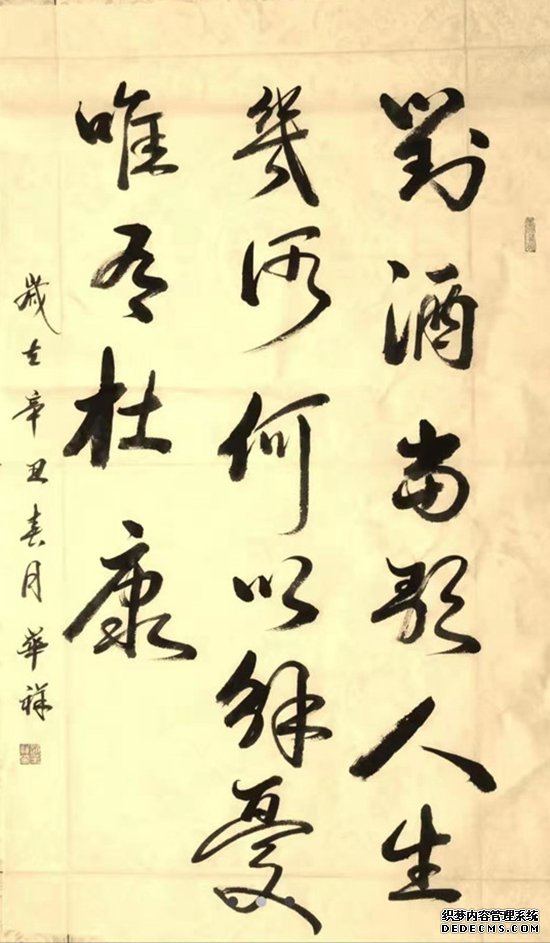 對酒當歌人生
幾何何以解憂
唯有杜康
歲在辛丑春月華祥
织梦内容管理系统
DEDECMS.COM